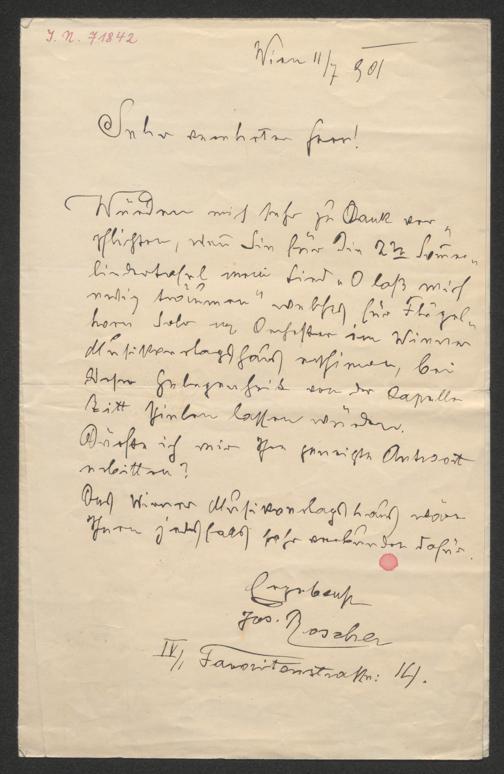 I. N. 71842
Wien 11/7 901
Sehr verehrter Herr!
Würden mich sehr zu Dank ver„
pflichten, wenn Sie für die 2te Sommer„
liedertafel mein Lied „O laß mich
ewig träumen" welches für Flügel„
horn Solo u. Orchester im Wiener
Musikverlagshaus erschienen, bei
dieser Gelegenheit von der Capelle
spielen lassen würden.
Dürfte ich mir Ihre geneigte Antwort
erbitten?
Das Wiener Musikverlagshaus wäre
Ihnen jedesfalls sehr verbunden dafür.
Ergebenst
Jos. Roscher
IV/1 Favoritenstraße: 14.